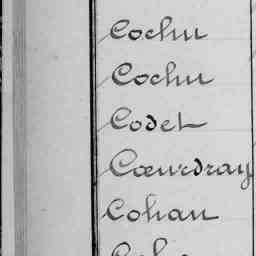 Cochu
Cochu
Codet
Cœurdray
Cohan